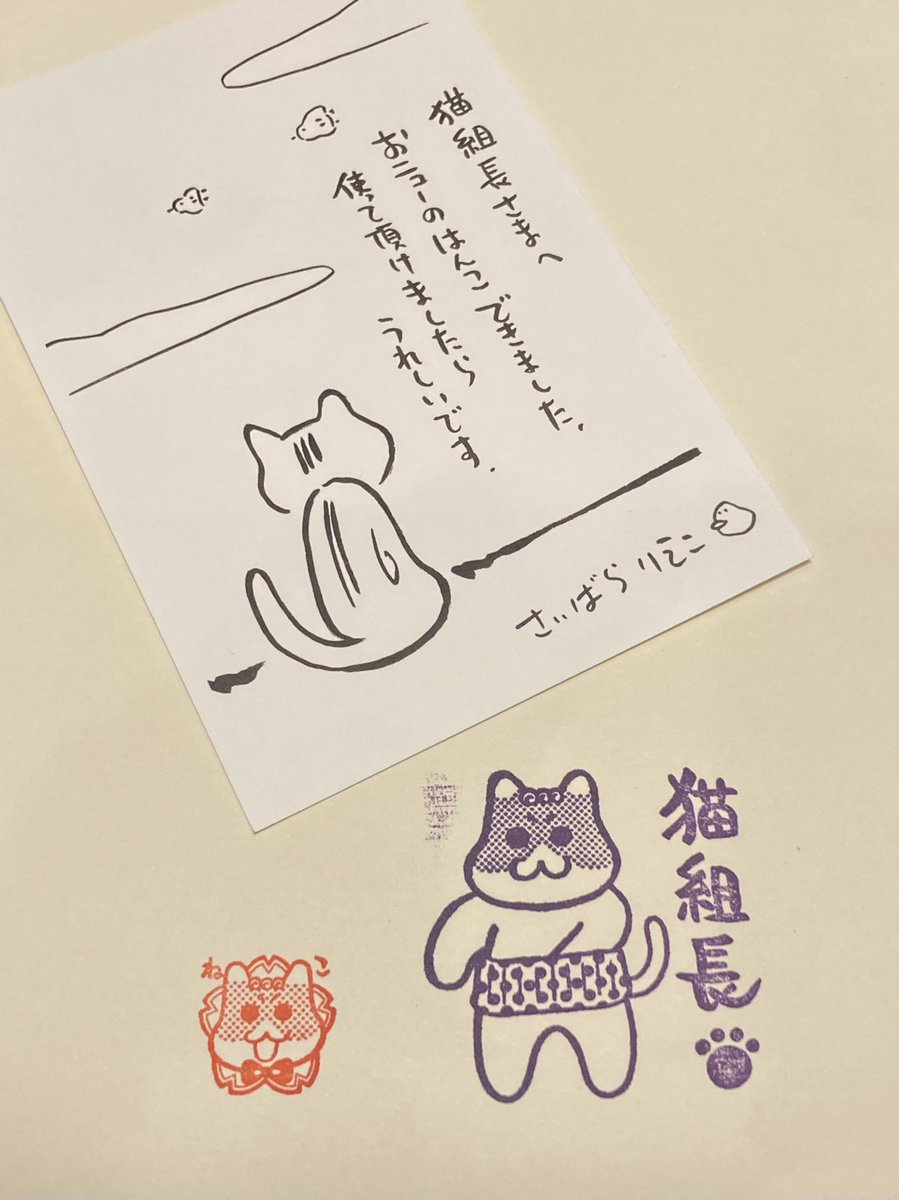 猫組長さまへ
おニューのはんこできました。
使って頂けましたら
うれしいです。
さいばらりえこ
猫組長
ねこ